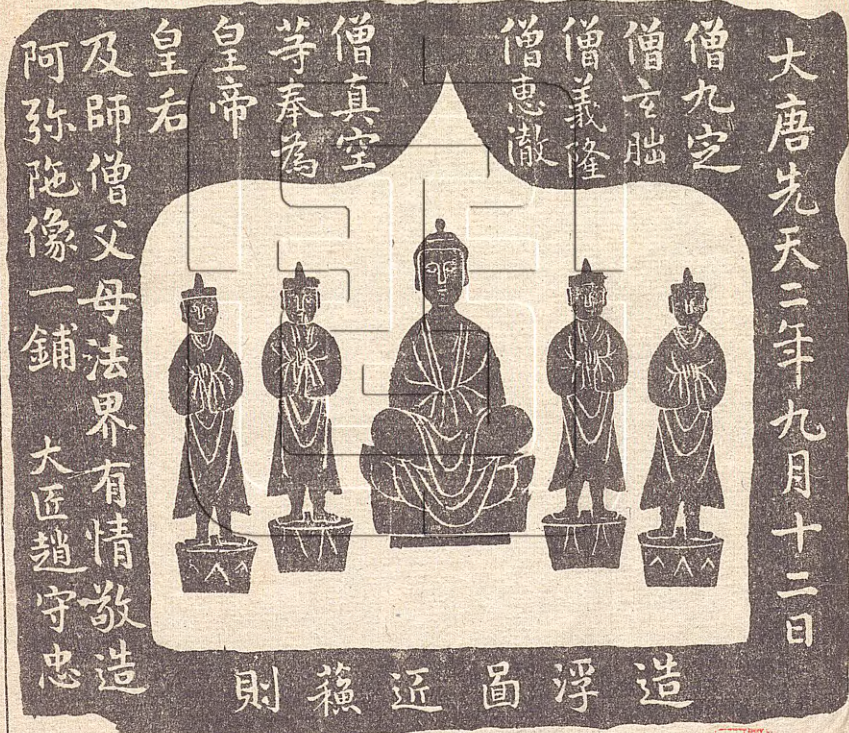 大唐先天二年九月十二日
僧九定
僧玄朏
僧義隆
僧惠澈
僧真空
等奉為
皇帝
皇后
及師僧父母法界有情敬造
阿弥陁像一鋪 大匠趙守忠
造浮圖近蘓則